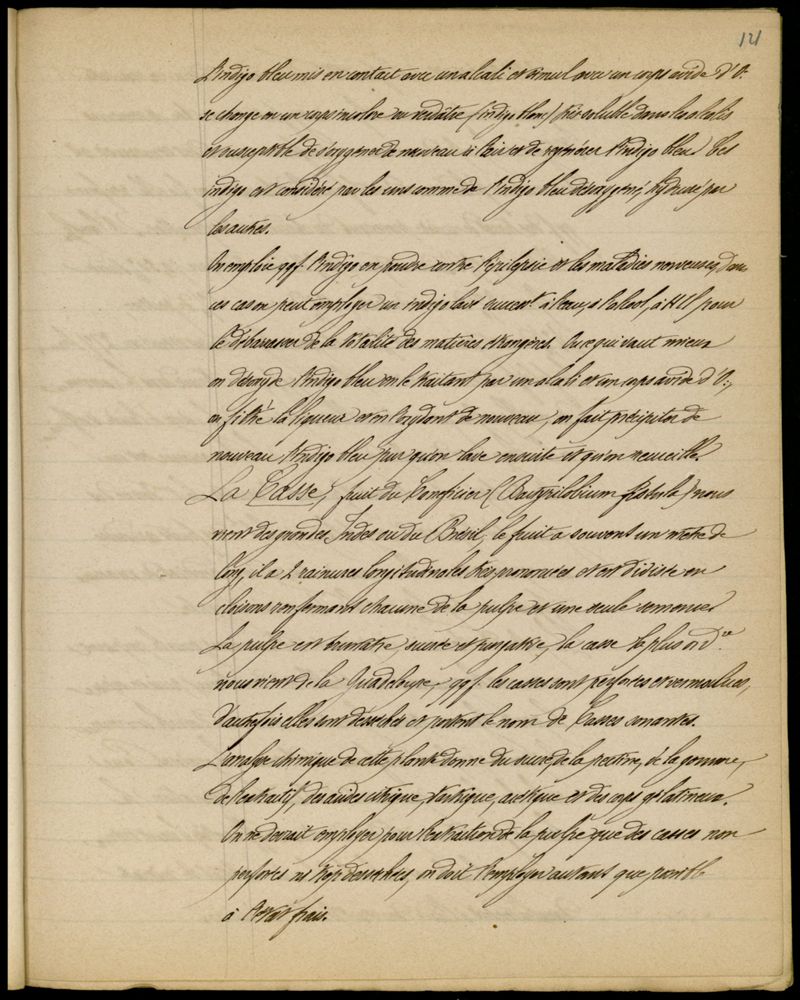 121
L'indigo bleu mis en contact avec un alcali et simul avec un corps avide d'O.
se change en un corps incolore ou verdâtre (indigo blanc) très soluble dans les alcalis
et susceptible de s'oxygéner de nouveau à l'air et de régénérer l'indigo bleu. Cet
indigo est considéré par les uns comme de l'indigo bleu désoxygéné, hydruré par
les autres.
On emploie qqf. l'indigo en poudre contre l'épilepsie et les maladies nerveuses, dans
ces cas on peut employer un indigo lavé success.t à l'eau, à l'alcool, à HCl pour
le débarrasser de la totalité des matières étrangères. Ou ce qui vaut mieux
on désoxyde l'indigo bleu en le traitant par un alcali et un corps avide d'O.,
on filtre la liqueur et en l'oxydant de nouveau, on fait précipiter de
nouveau l'indigo bleu pur qu'on lave ensuite et qu'on recueille.
La Casse, fruit du Caneficier (Bactyrilobium fistula) nous
vient des grandes Indes ou du Brésil, le fruit a souvent un mètre de
long, il a 2 rainures longitudinales très prononcées et est divisée en
cloisons renfermant chacune de la pulpe et une seule semence.
La pulpe est brunâtre, sucrée et purgative, la casse la plus ord.re
nous vient de la Guadeloupe, qqf. les casses sont perforées et vermoulues,
d'autrefois elles sont desséchées et portent le nom de Casses sonantes.
L'analyse chimique de cette plante donne du sucre, de la pectine, de la gomme,
de l'extractif, des acides citrique, tartrique, acétique et des corps gélatineux.
On ne devrait employer pour l'extraction de la pulpe que des casses non
perforées ni trop desséchées, on doit l'employer autant que possible
à l'état frais.